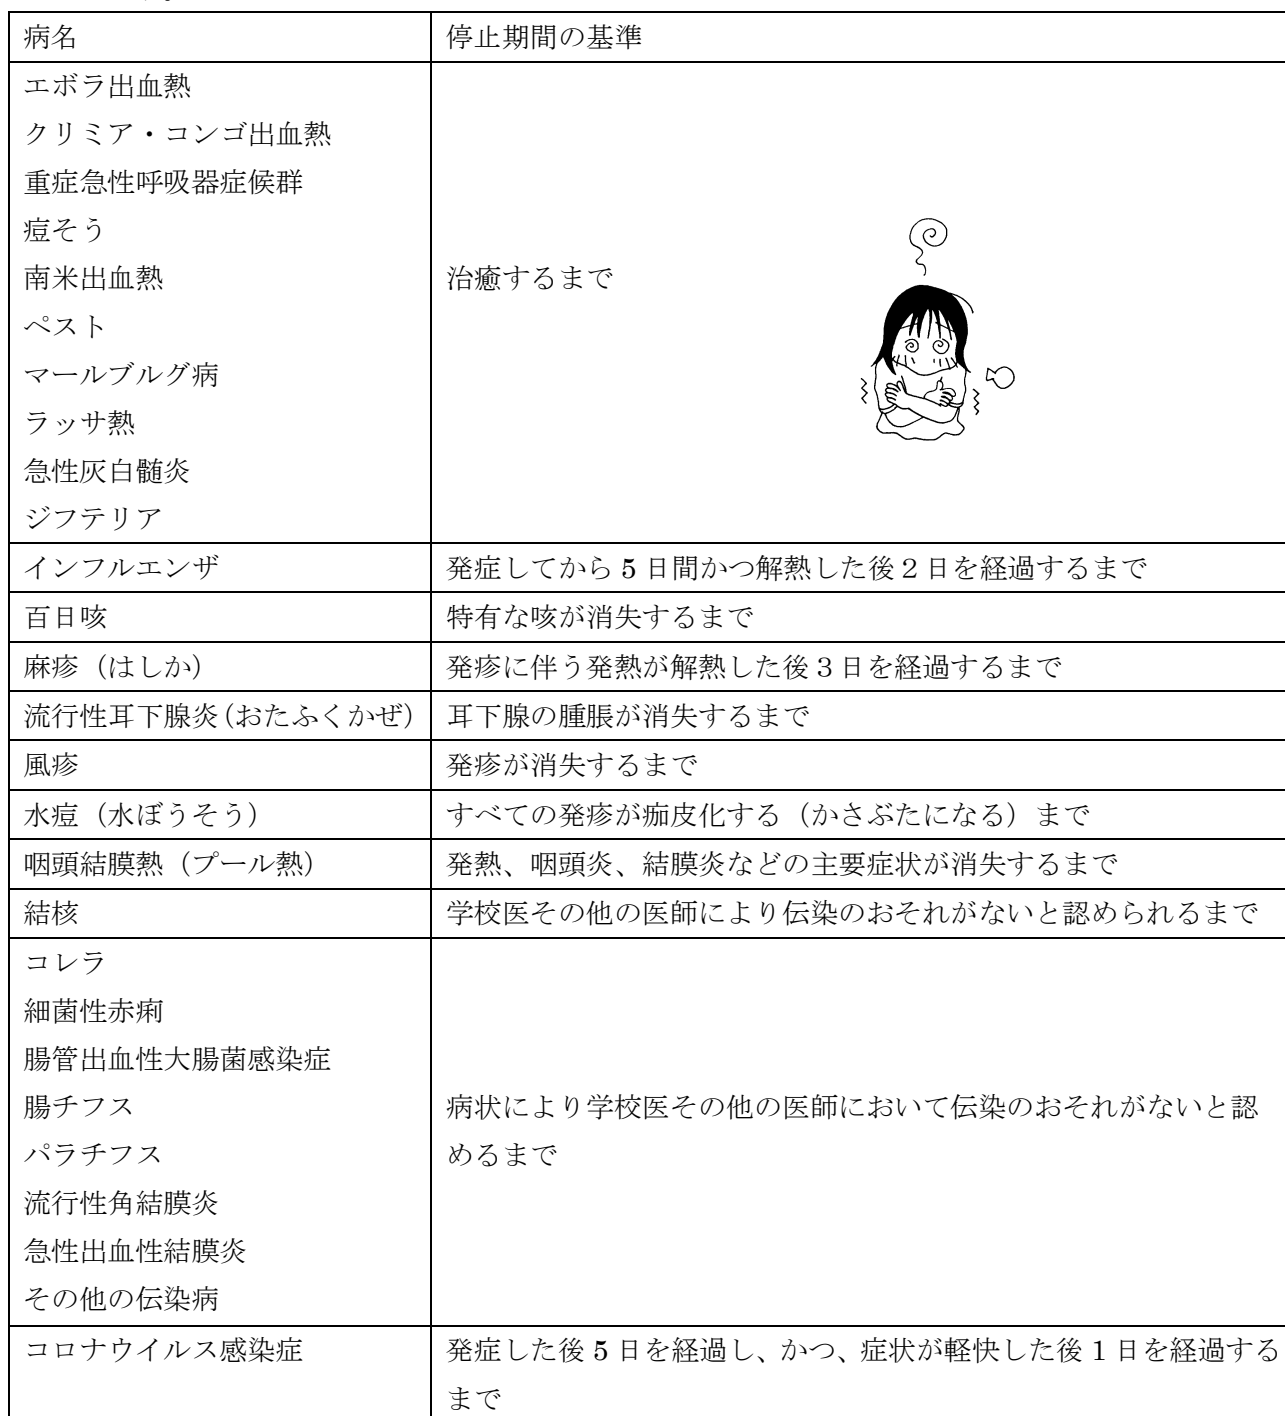 病名
停止期間の基準
エボラ出血熱
クリミア・コンゴ出血熱
重症急性呼吸器症候群
痘そう
南米出血熱
ペスト
マールブルグ病
ラッサ熱
急性灰白髄炎
ジフテリア
治癒するまで
インフルエンザ
発症してから 5 日間かつ解熱した後２日を経過するまで
百日咳
特有な咳が消失するまで
麻疹（はしか）
発疹に伴う発熱が解熱した後３日を経過するまで
流行性耳下腺炎(おたふくかぜ)
耳下腺の腫脹が消失するまで
風疹
発疹が消失するまで
水痘（水ぼうそう）
すべての発疹が痂皮化する（かさぶたになる）まで
咽頭結膜熱（プール熱）
発熱、咽頭炎、結膜炎などの主要症状が消失するまで
結核
学校医その他の医師により伝染のおそれがないと認められるまで
コレラ
細菌性赤痢
腸管出血性大腸菌感染症
腸チフス
パラチフス
流行性角結膜炎
急性出血性結膜炎
その他の伝染病
病状により学校医その他の医師において伝染のおそれがないと認
めるまで
コロナウイルス感染症
発症した後 5 日を経過し、かつ、症状が軽快した後 1 日を経過する
まで